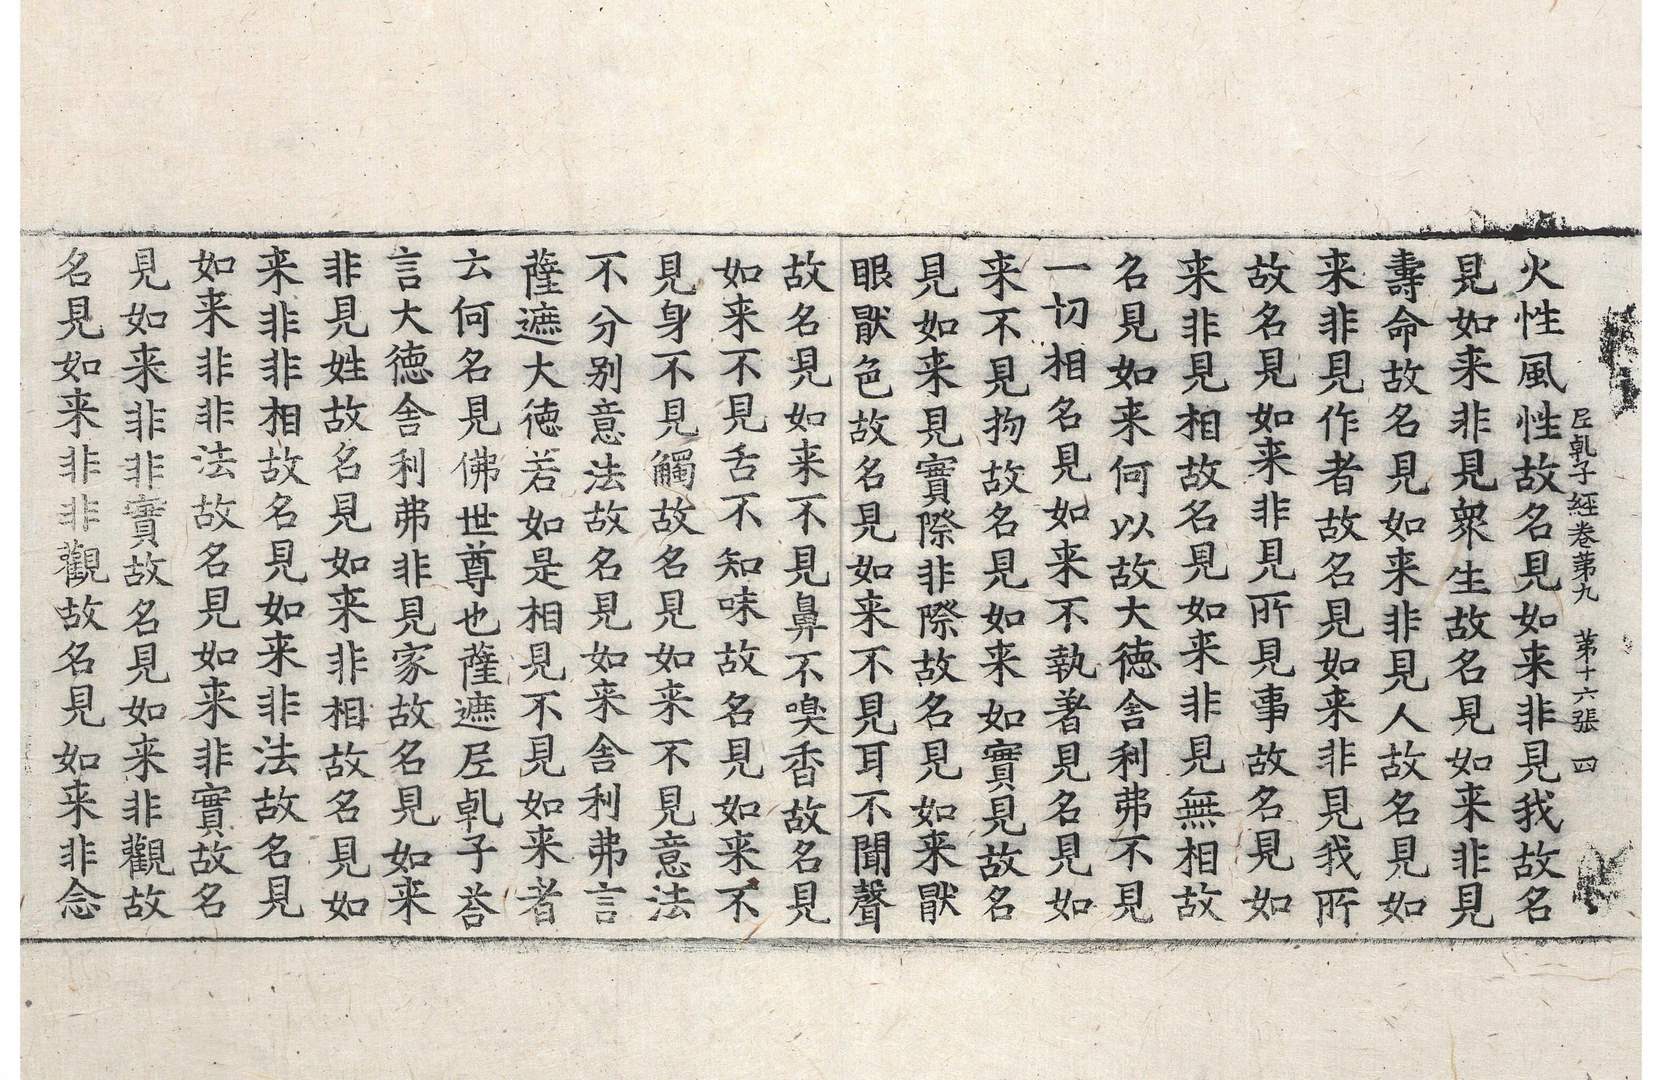 𡰱乹子經卷苐九 苐十六張 四
火性風性故名見如来非見我故名
見如来非見衆生故名見如来非見
壽命故名見如来非見人故名見如
来非見作者故名見如来非見我所
故名見如来非見所見事故名見如
来非見相故名見如来非見無相故
名見如来何以故大徳舎利弗不見
一切相名見如来不執著見名見如
来不見物故名見如来如實見故名
見如来見實際非際故名見如来眼
眼厭色故名見如来不見耳不聞聲
故名見如来不見鼻不嗅香故名見
如来不見舌不知味故名見如来不
見身不見觸故名見如来不見意法
不分别意法故名見如来舎利弗言
薩遮大徳若如是相見不見如来者
云何名見佛世尊也薩遮𡰱乹子荅
言大德舎利弗非見家故名見如来
非見姓故名見如来非相故名見如
来非非相故名見如来非法故名見
如来非非法故名見如来非實故名
見如来非非實故名見如来非觀故
名見如来非非觀故名見如来非念